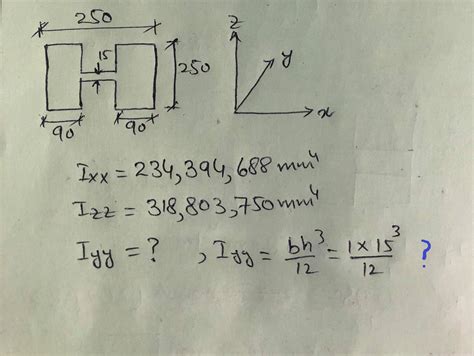 250
15
250
90
90
z
y
x
Ixx = 234,394,688 mm⁴
Izz = 318,803,750 mm⁴
Iyy = ? , Iyy = bh³/12 = 1×15³/12 ?